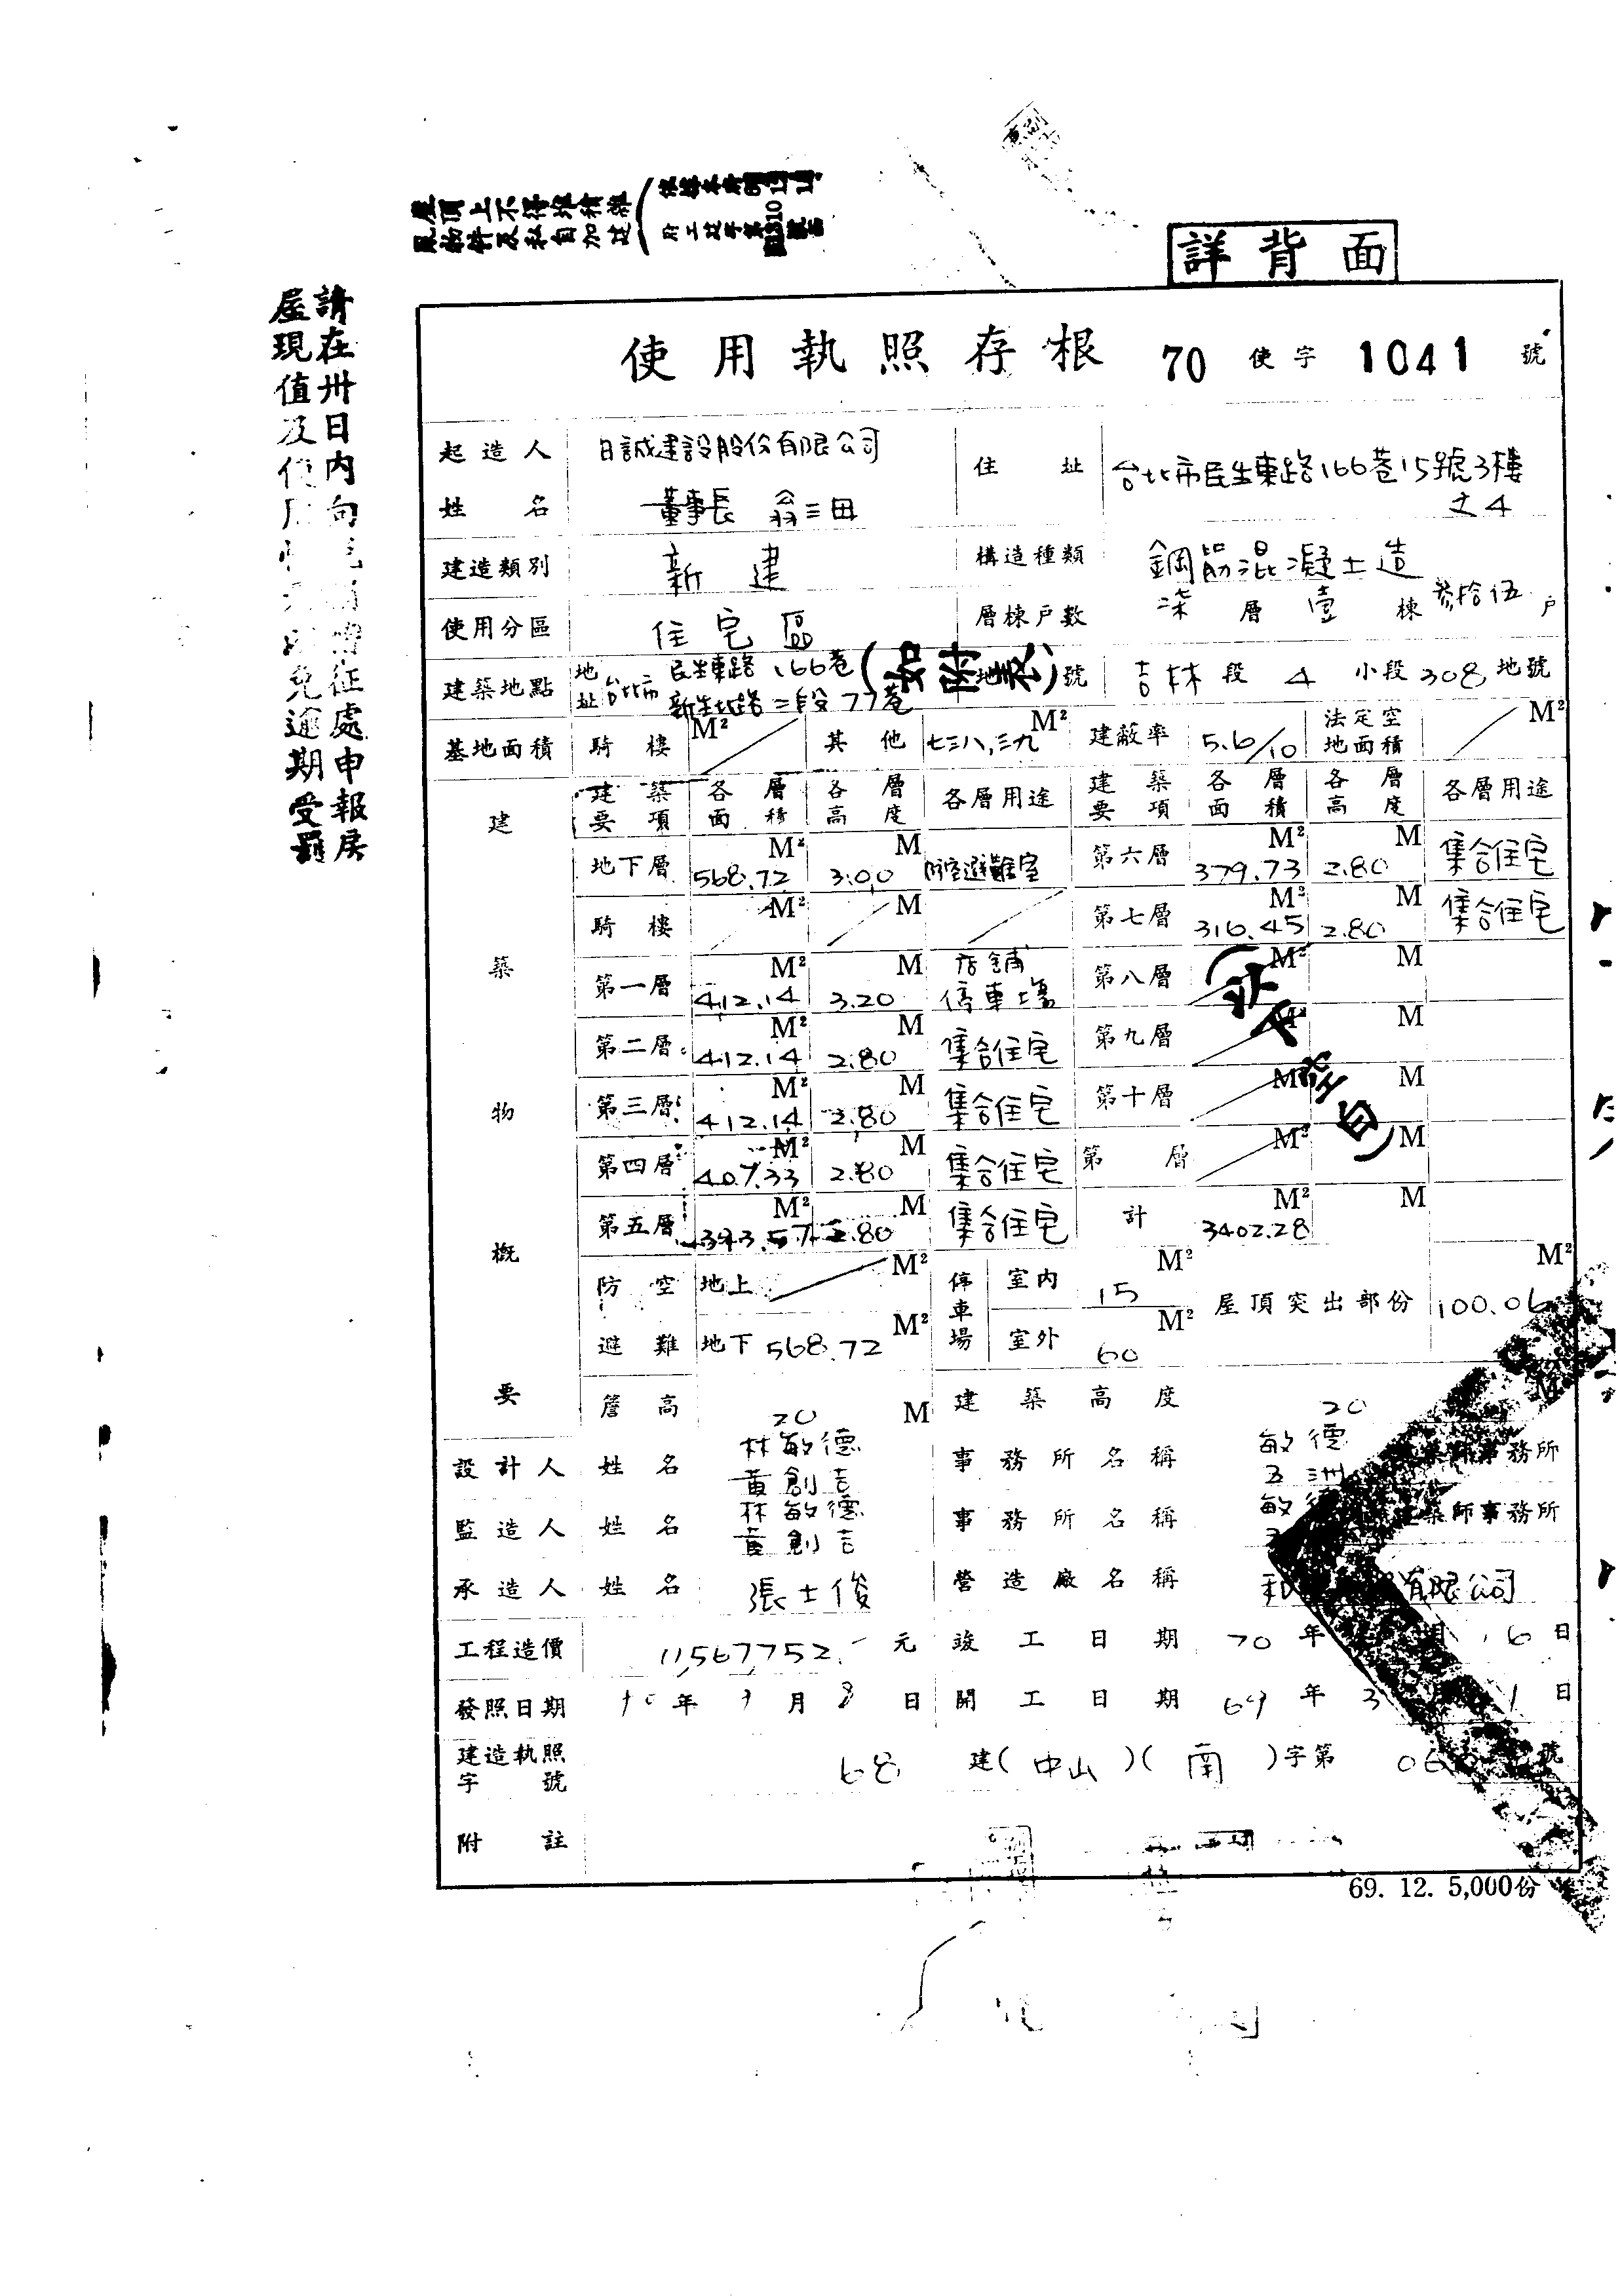 詳背面
使用執照存根 70 使字 1041 號
起造人姓名 日誠建設股份有限公司 董事長 翁三田
住址 台北市民生東路166巷15號3樓之4
建造類別 新建 構造種類 鋼筋混凝土造
使用分區 住宅區 層棟戶數 柒層壹棟參拾伍戶
建築地點 地址 台北市 民生東路166巷 新生北路二段77巷 地號 吉林段 4 小段 308 地號
基地面積 騎樓 M² 其他 七三八,三九 M² 建蔽率 5.6/10 法定空地面積 M²
建築物概要
建築要項 各層面積 各層高度 各層用途 建築要項 各層面積 各層高度 各層用途
地下層 568.72 M² 3.00 M 防空避難室 第六層 379.73 M² 2.80 M 集合住宅
騎樓 M² M 第七層 316.45 M² 2.80 M 集合住宅
第一層 412.14 M² 3.20 M 店鋪 停車場 第八層 M² M
第二層 412.14 M² 2.80 M 集合住宅 第九層 M² M
第三層 412.14 M² 2.80 M 集合住宅 第十層 M² M
第四層 407.33 M² 2.80 M 集合住宅 第 層 M² M
第五層 393.57 M² 2.80 M 集合住宅 計 3402.28 M² M
防空避難 地上 M² 停車場 室內 15 M² 屋頂突出部份 100.06 M²
地下 568.72 M² 室外 60 M²
簷高 20 M 建築高度 20 M
設計人 姓名 林敏德 黃創吉 事務所名稱 敏德 五洲 建築師事務所
監造人 姓名 林敏德 黃創吉 事務所名稱 敏 建築師事務所
承造人 姓名 張士俊 營造廠名稱 有限公司
工程造價 11,567,752 元 竣工日期 70 年 6 日
發照日期 年 月 8 日 開工日期 69 年 3 1 日
建造執照字號 68 建(中山)(南)字第 號
附註
69. 12. 5,000份
請在卅日內向 征處申報房
屋現值及使 免逾期受罰